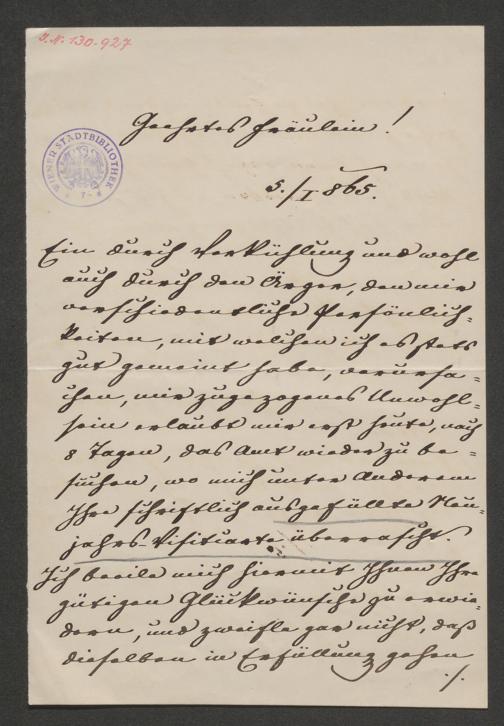 J.N. 130.927
WIENER STADTBIBLIOTHEK
Geehrtes Fräulein!
5./I 865.
Ein durch Verkühlung und wohl
auch durch den Ärger, den mir
verschiedentliche Persönlich=
keiten, mit welchen ich es stets
gut gemeint habe, verursa=
chen, mir zugezogenes Unwohl=
sein erlaubt mir erst heute, nach
8 Tagen, das Amt wieder zu be=
suchen, wo mich unter Anderem
Ihre schriftlich ausgefüllte Neu=
jahrs-Visitkarte überrascht.
Ich beeile mich hiermit Ihnen Ihre
gütigen Glückwünsche zu erwie=
dern, und zweifle gar nicht, daß
dieselben in Erfüllung gehen
./.